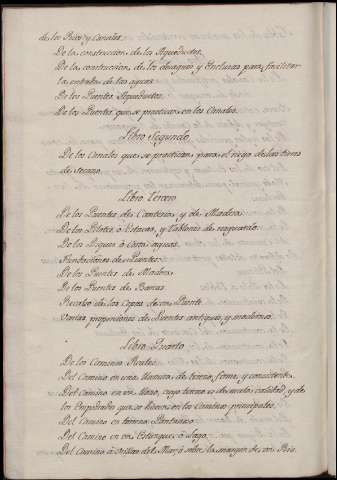 de los Rios y Canales.
De la construccion de los Aqueductos.
De la construccion de los desagues y Esclusas para facilitar
la entrada de las aguas.
De los Puentes Aqueductos.
De los Puentes que se practican en los Canales.
Libro Segundo.
De los Canales que se practican para el riego de las tierras
de secano.
Libro tercero
De los Puentes de Canteria, y de Madera.
De los Pilotes, ó Estacas, y tablones de resguardo.
De los Diques ó Corta aguas.
Fundaciones de Puentes.
De los Puentes de Madera.
De los Puentes de Barcas.
de los de un Puente
Varias proporciones de Puentes antiguos, y modernos.
Libro Quarto.
De los Caminos Reales.
Del Camino en una llanura de terreno firme, y consistente.
Del Camino en un llano, cuyo terreno es de mala calidad, y de
los Empedrados que se hacen en los Caminos principales.
Del Camino en terreno Pantanoso.
Del Camino en un Estanque, ó Lago.
Del Camino á orillas del Mar, ó sobre la margen de un Rio.